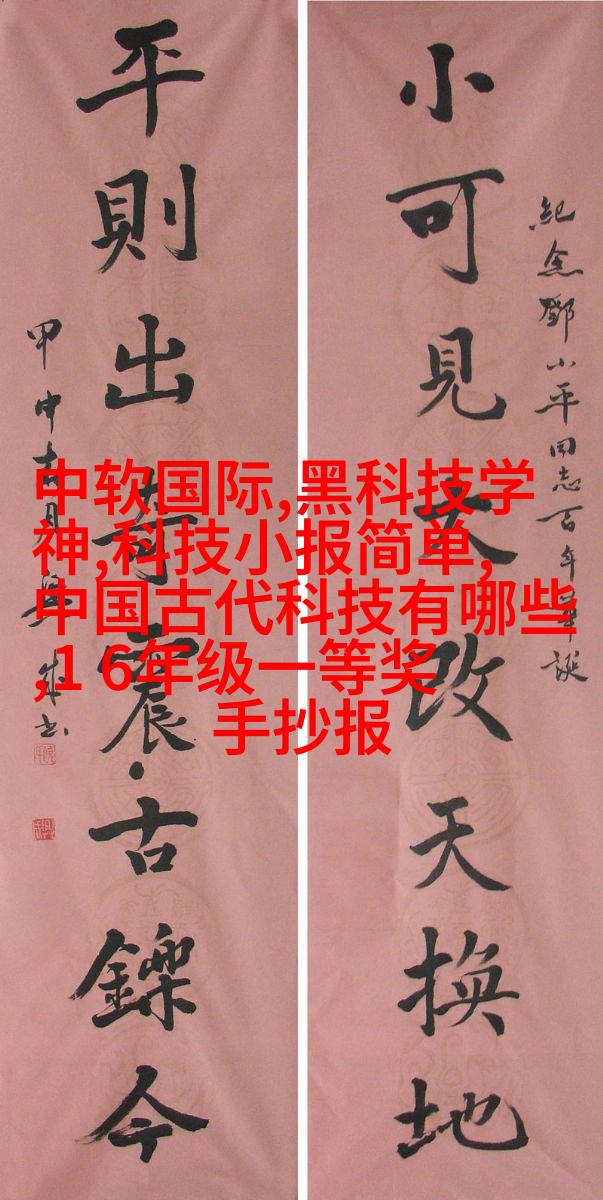 紀念鄧小平同志百年華誕
小可見大改天換地
平則出奇震古鑠今
甲申月
中软国际,黑科技学
神,科技小报简单,
中国古代科技有哪些
,1 6年级一等奖
手抄报